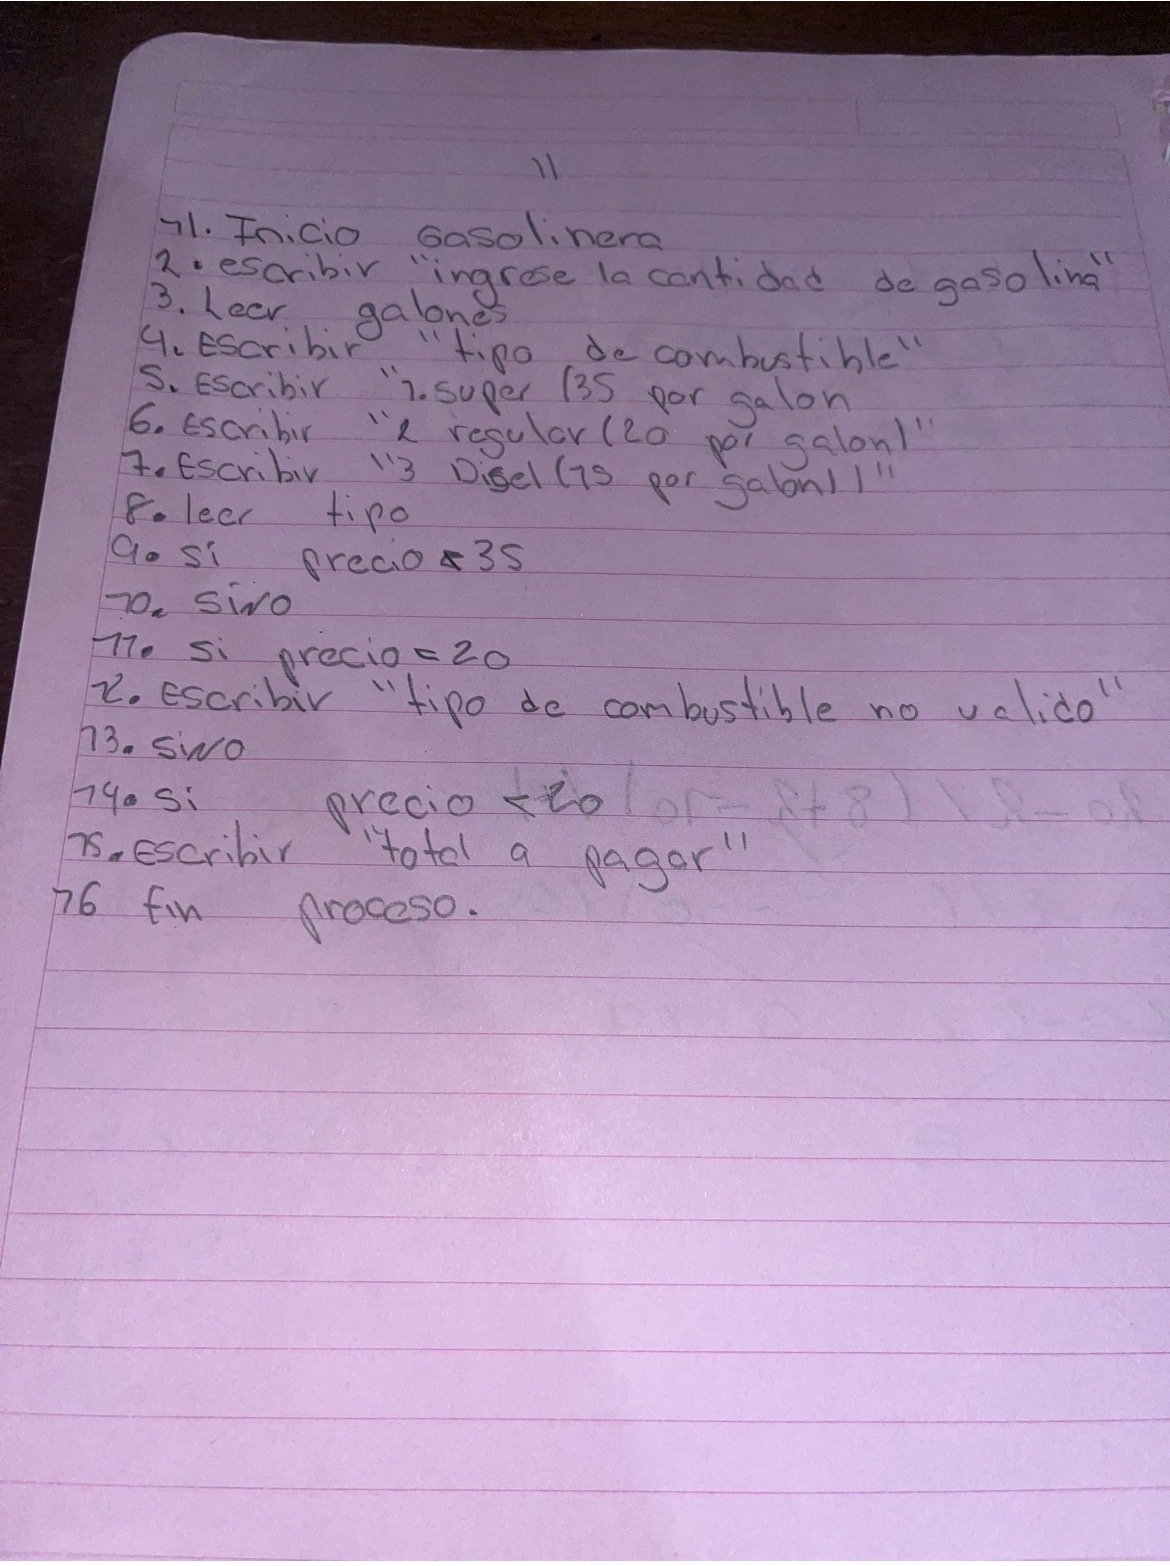 11
1. Inicio Gasolinera
2. escribir "ingrese la cantidad de gasolina"
3. Leer galones
4. Escribir "tipo de combustible"
5. Escribir "1. super (35 por galon
6. Escribir "2 regular (20 por galon)"
7. Escribir "3 Disel (15 por galon))"
8. leer tipo
9. si precio < 35
10. sino
11. si precio = 20
12. Escribir "tipo de combustible no valido"
13. sino
14. si precio < 20
15. Escribir "total a pagar"
16 fin proceso.